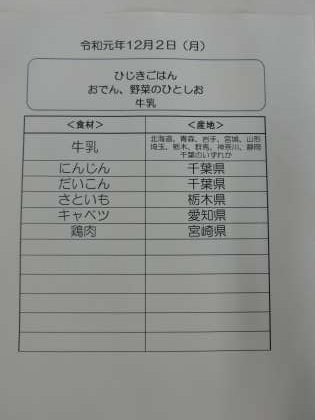 令和元年12月2日（月）
ひじきごはん
おでん、野菜のひとしお
牛乳
＜食材＞ ＜産地＞
牛乳 北海道、青森、岩手、宮城、山形
埼玉、栃木、群馬、神奈川、静岡
千葉のいずれか
にんじん 千葉県
だいこん 千葉県
さといも 栃木県
キャベツ 愛知県
鶏肉 宮崎県